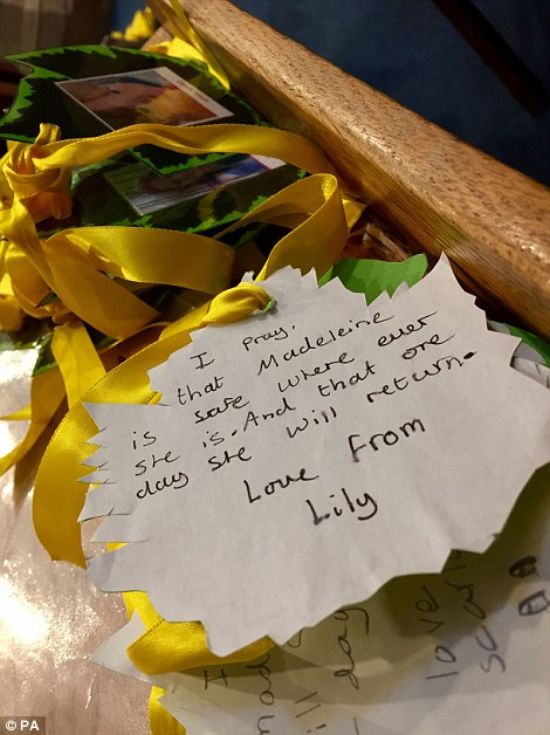 I pray.
that Madeleine
is safe where ever
she is. And that one
day she will return.
Love From
Lily
love
day
© PA